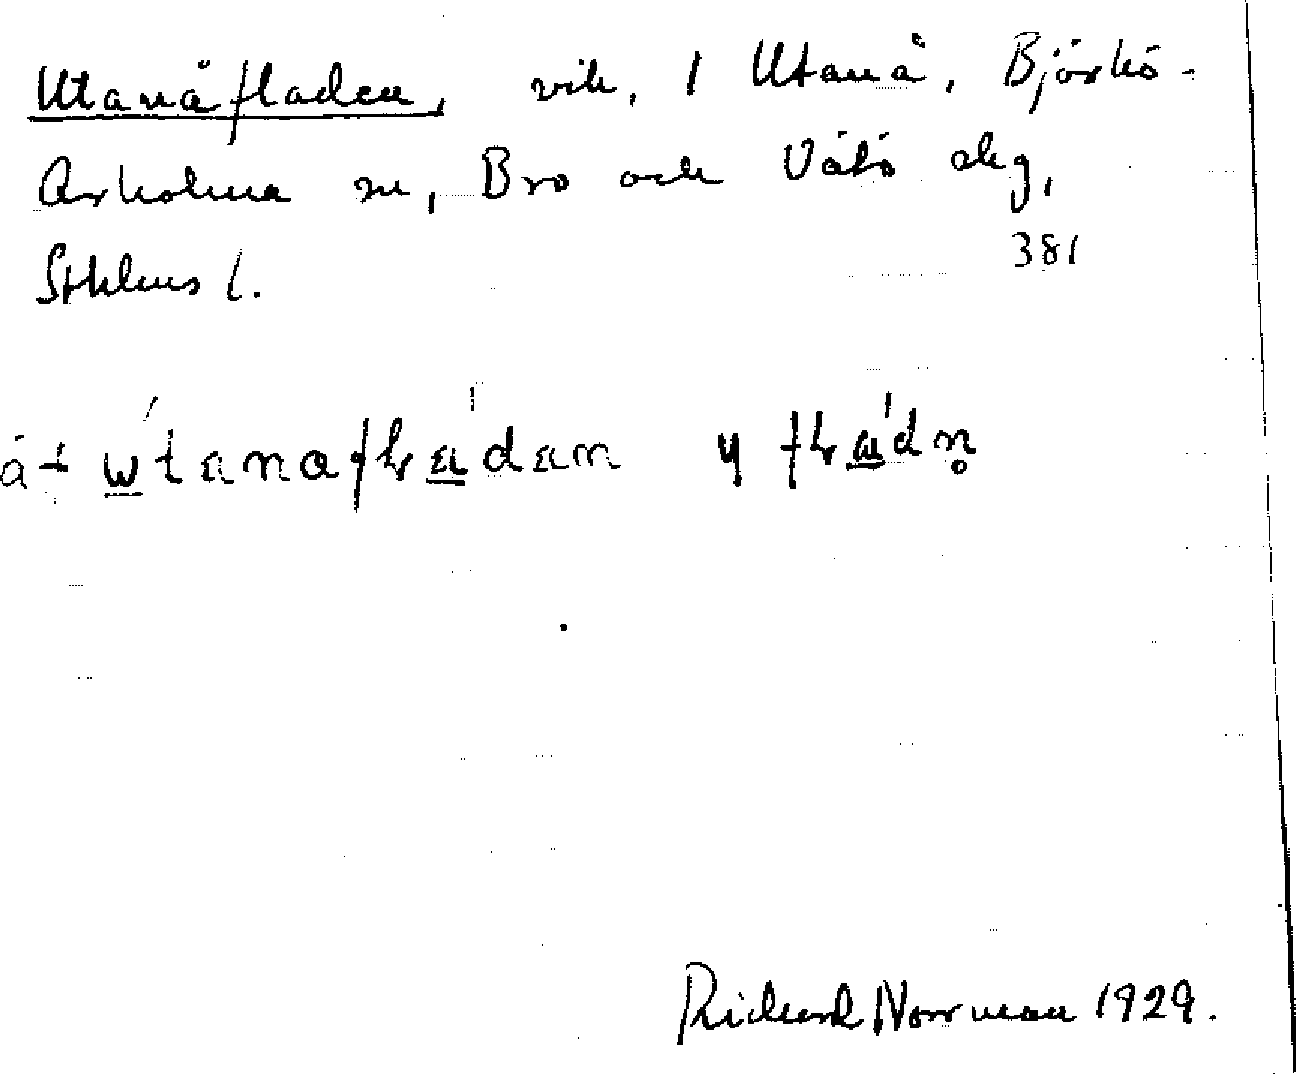 Utanåfladen, vik, 1 Utanå, Björkö-
Arholma sn, Bro och Vätö skg,
Sthlms l. 381
åt
y
Richard Norrman 1929.